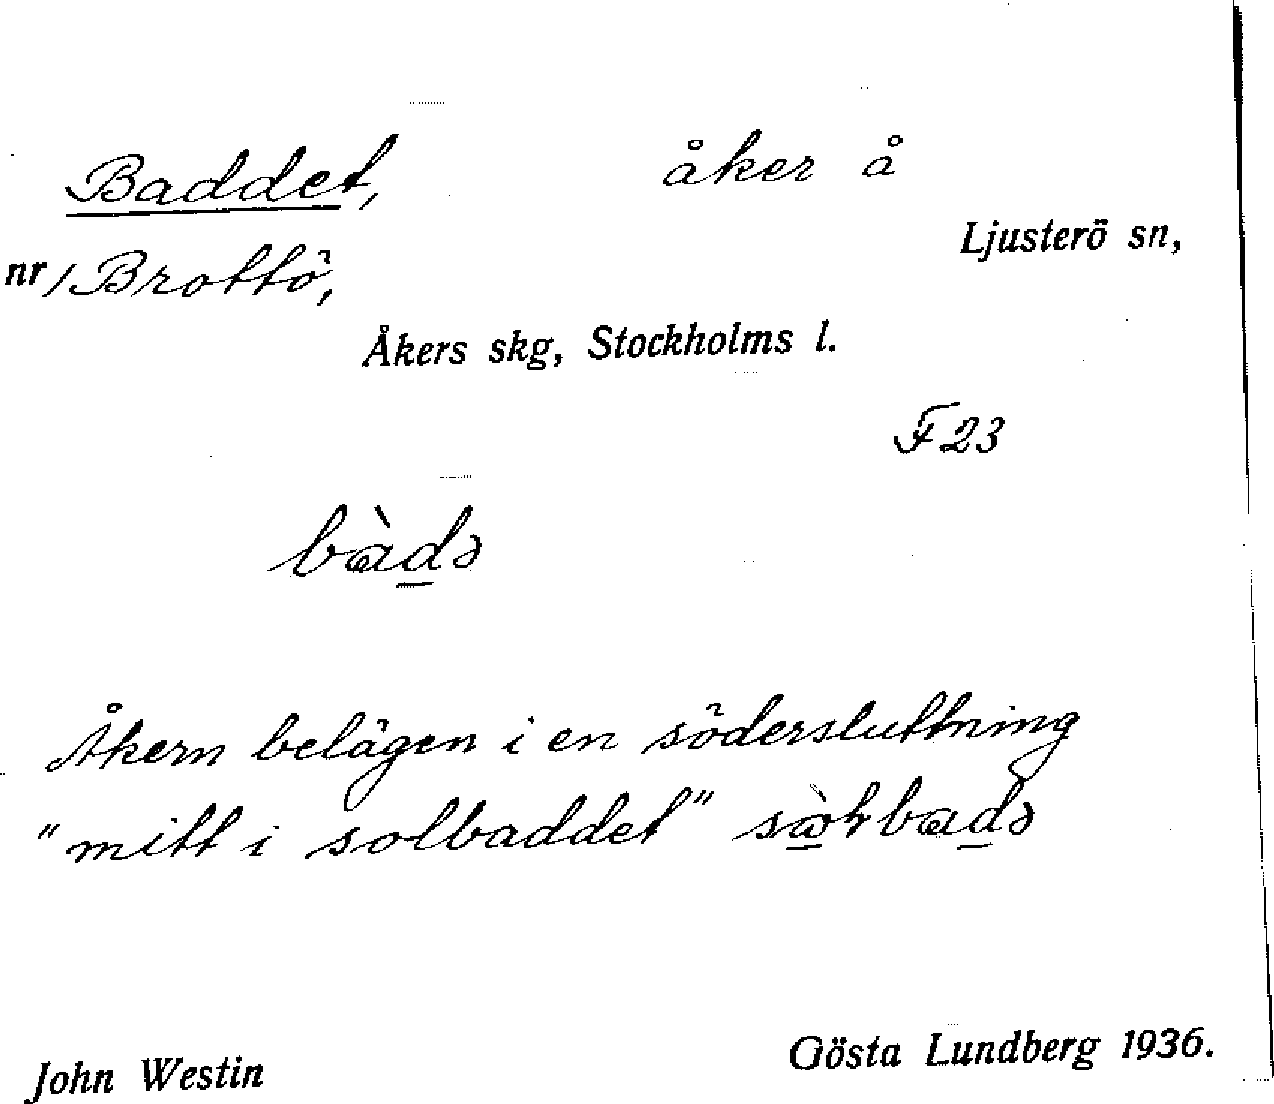 Baddet, åker å
Ljusterö sn,
nr/Brottö,
Åkers skg, Stockholms l.
F23
bàdə
Åkern belägen i en södersluttning
"mitt i solbaddet"
John Westin Gösta Lundberg 1936.